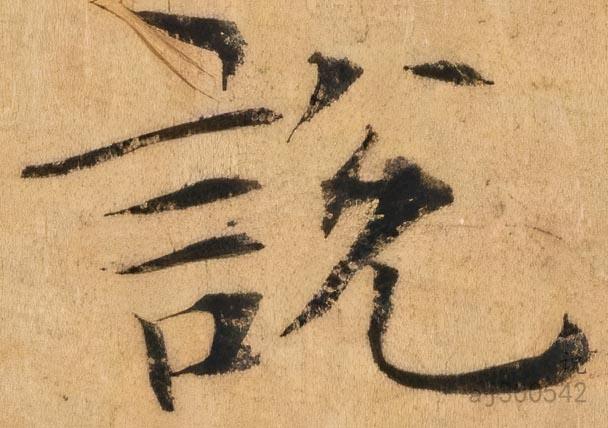 說
aj300542